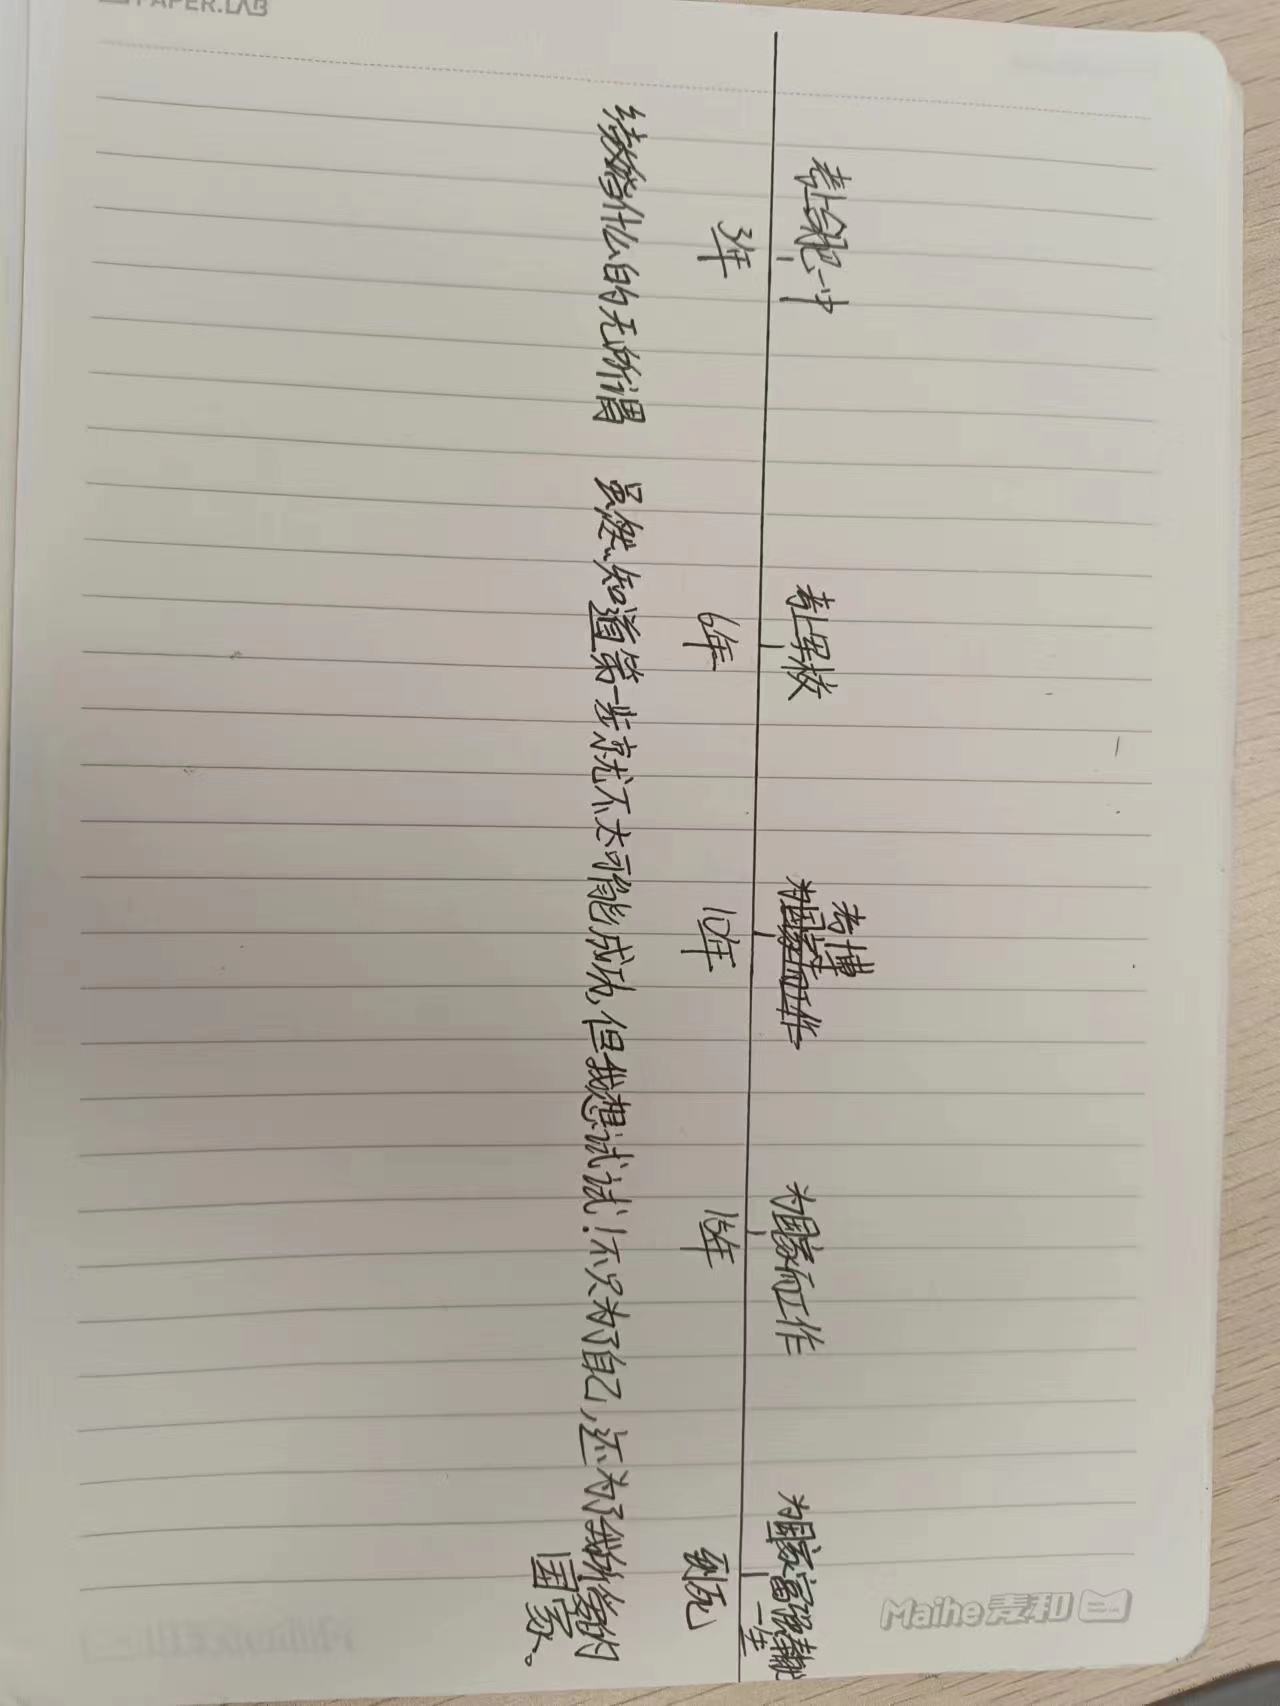 PAPER.LAB
考上合肥一中
考上军校
考博
为国家而工作
为国家富强奉献
一生
3年
6年
10年
15年
到死
结婚什么的无所谓
虽然知道第一步就不太可能成功，但我想试试！不只为了自己，还为了我所爱的
国家。
Maihe 麦和